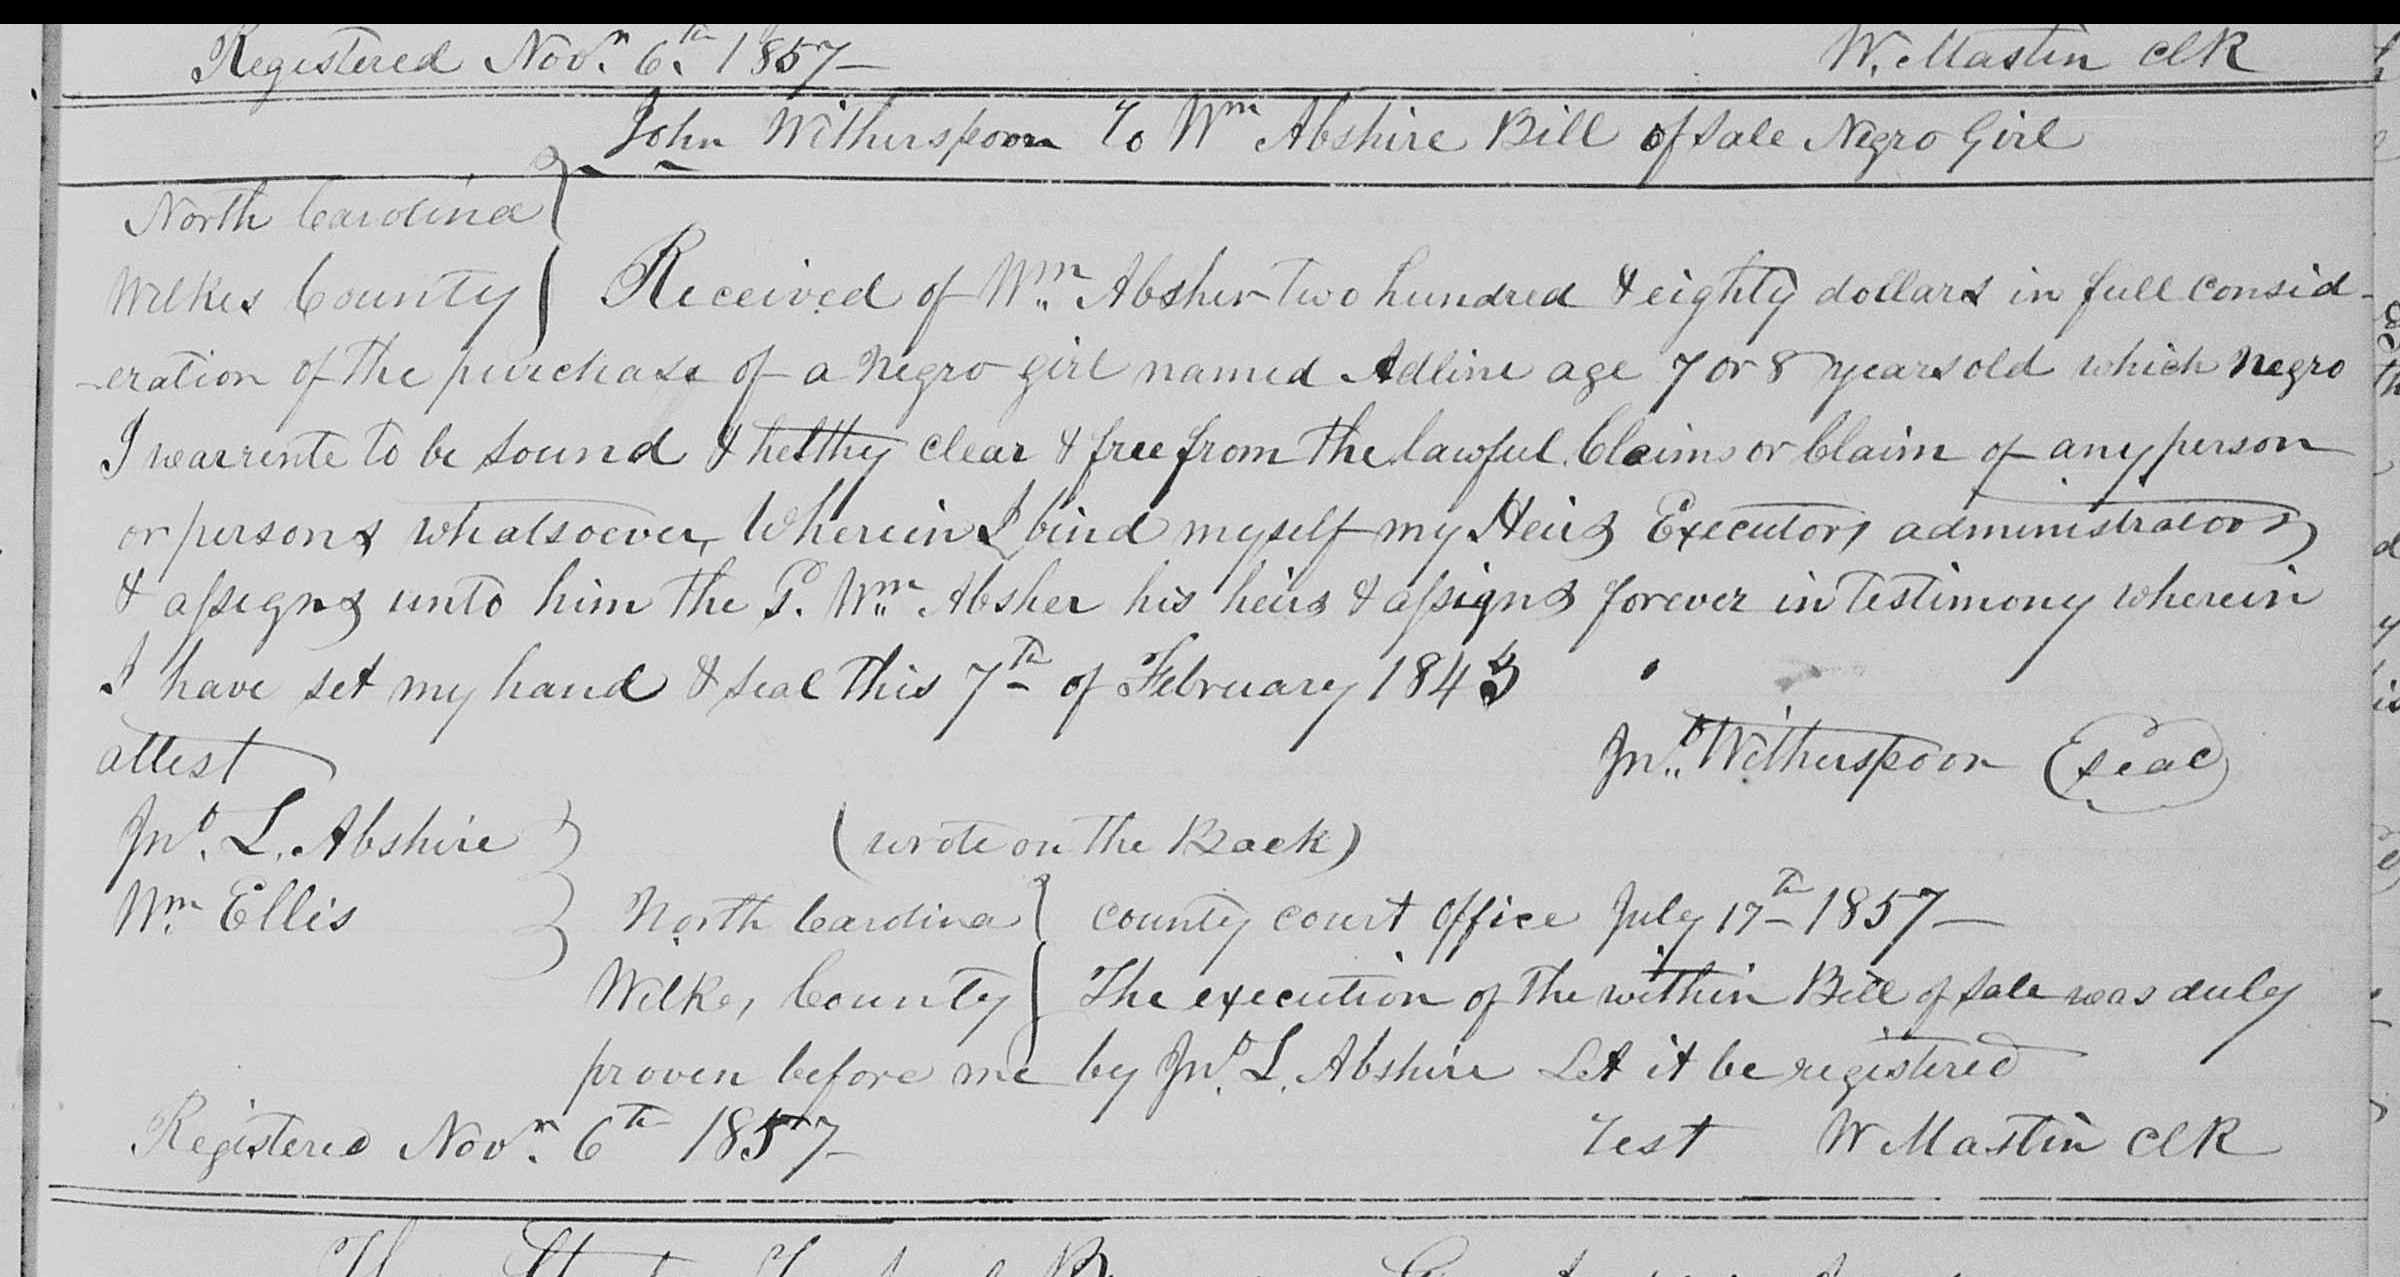 Registered Novr. 6th. 1857 W. Mastin Clk
John Witherspoon To Wm Abshire Bill of Sale Negro Girl
North Carolina
Wilkes County Received of Wm. Absher two hundred & eighty dollars in full consid-
-eration of the purchase of a negro girl named Adline age 7 or 8 years old which negro
I warrente to be sound & helthy clear & free from the lawful Claims or Claim of any person
or persons whatsoever, Wherein I bind myself my Heirs Executors administrators
& assigns unto him the S. Wm. Absher his heirs & assigns forever in testimony wherein
I have set my hand & seal this 7th of February 1843
attest
Jno. Witherspoon (seal)
Jno. L. Abshire (wrote on the Back)
Wm. Ellis North Carolina County Court Office July 17th 1857
Wilkes County The execution of the within Bill of Sale was duly
proven before me by Jno. L. Abshire Let it be registered
Registered Novr. 6th 1857 Test W Mastin Clk